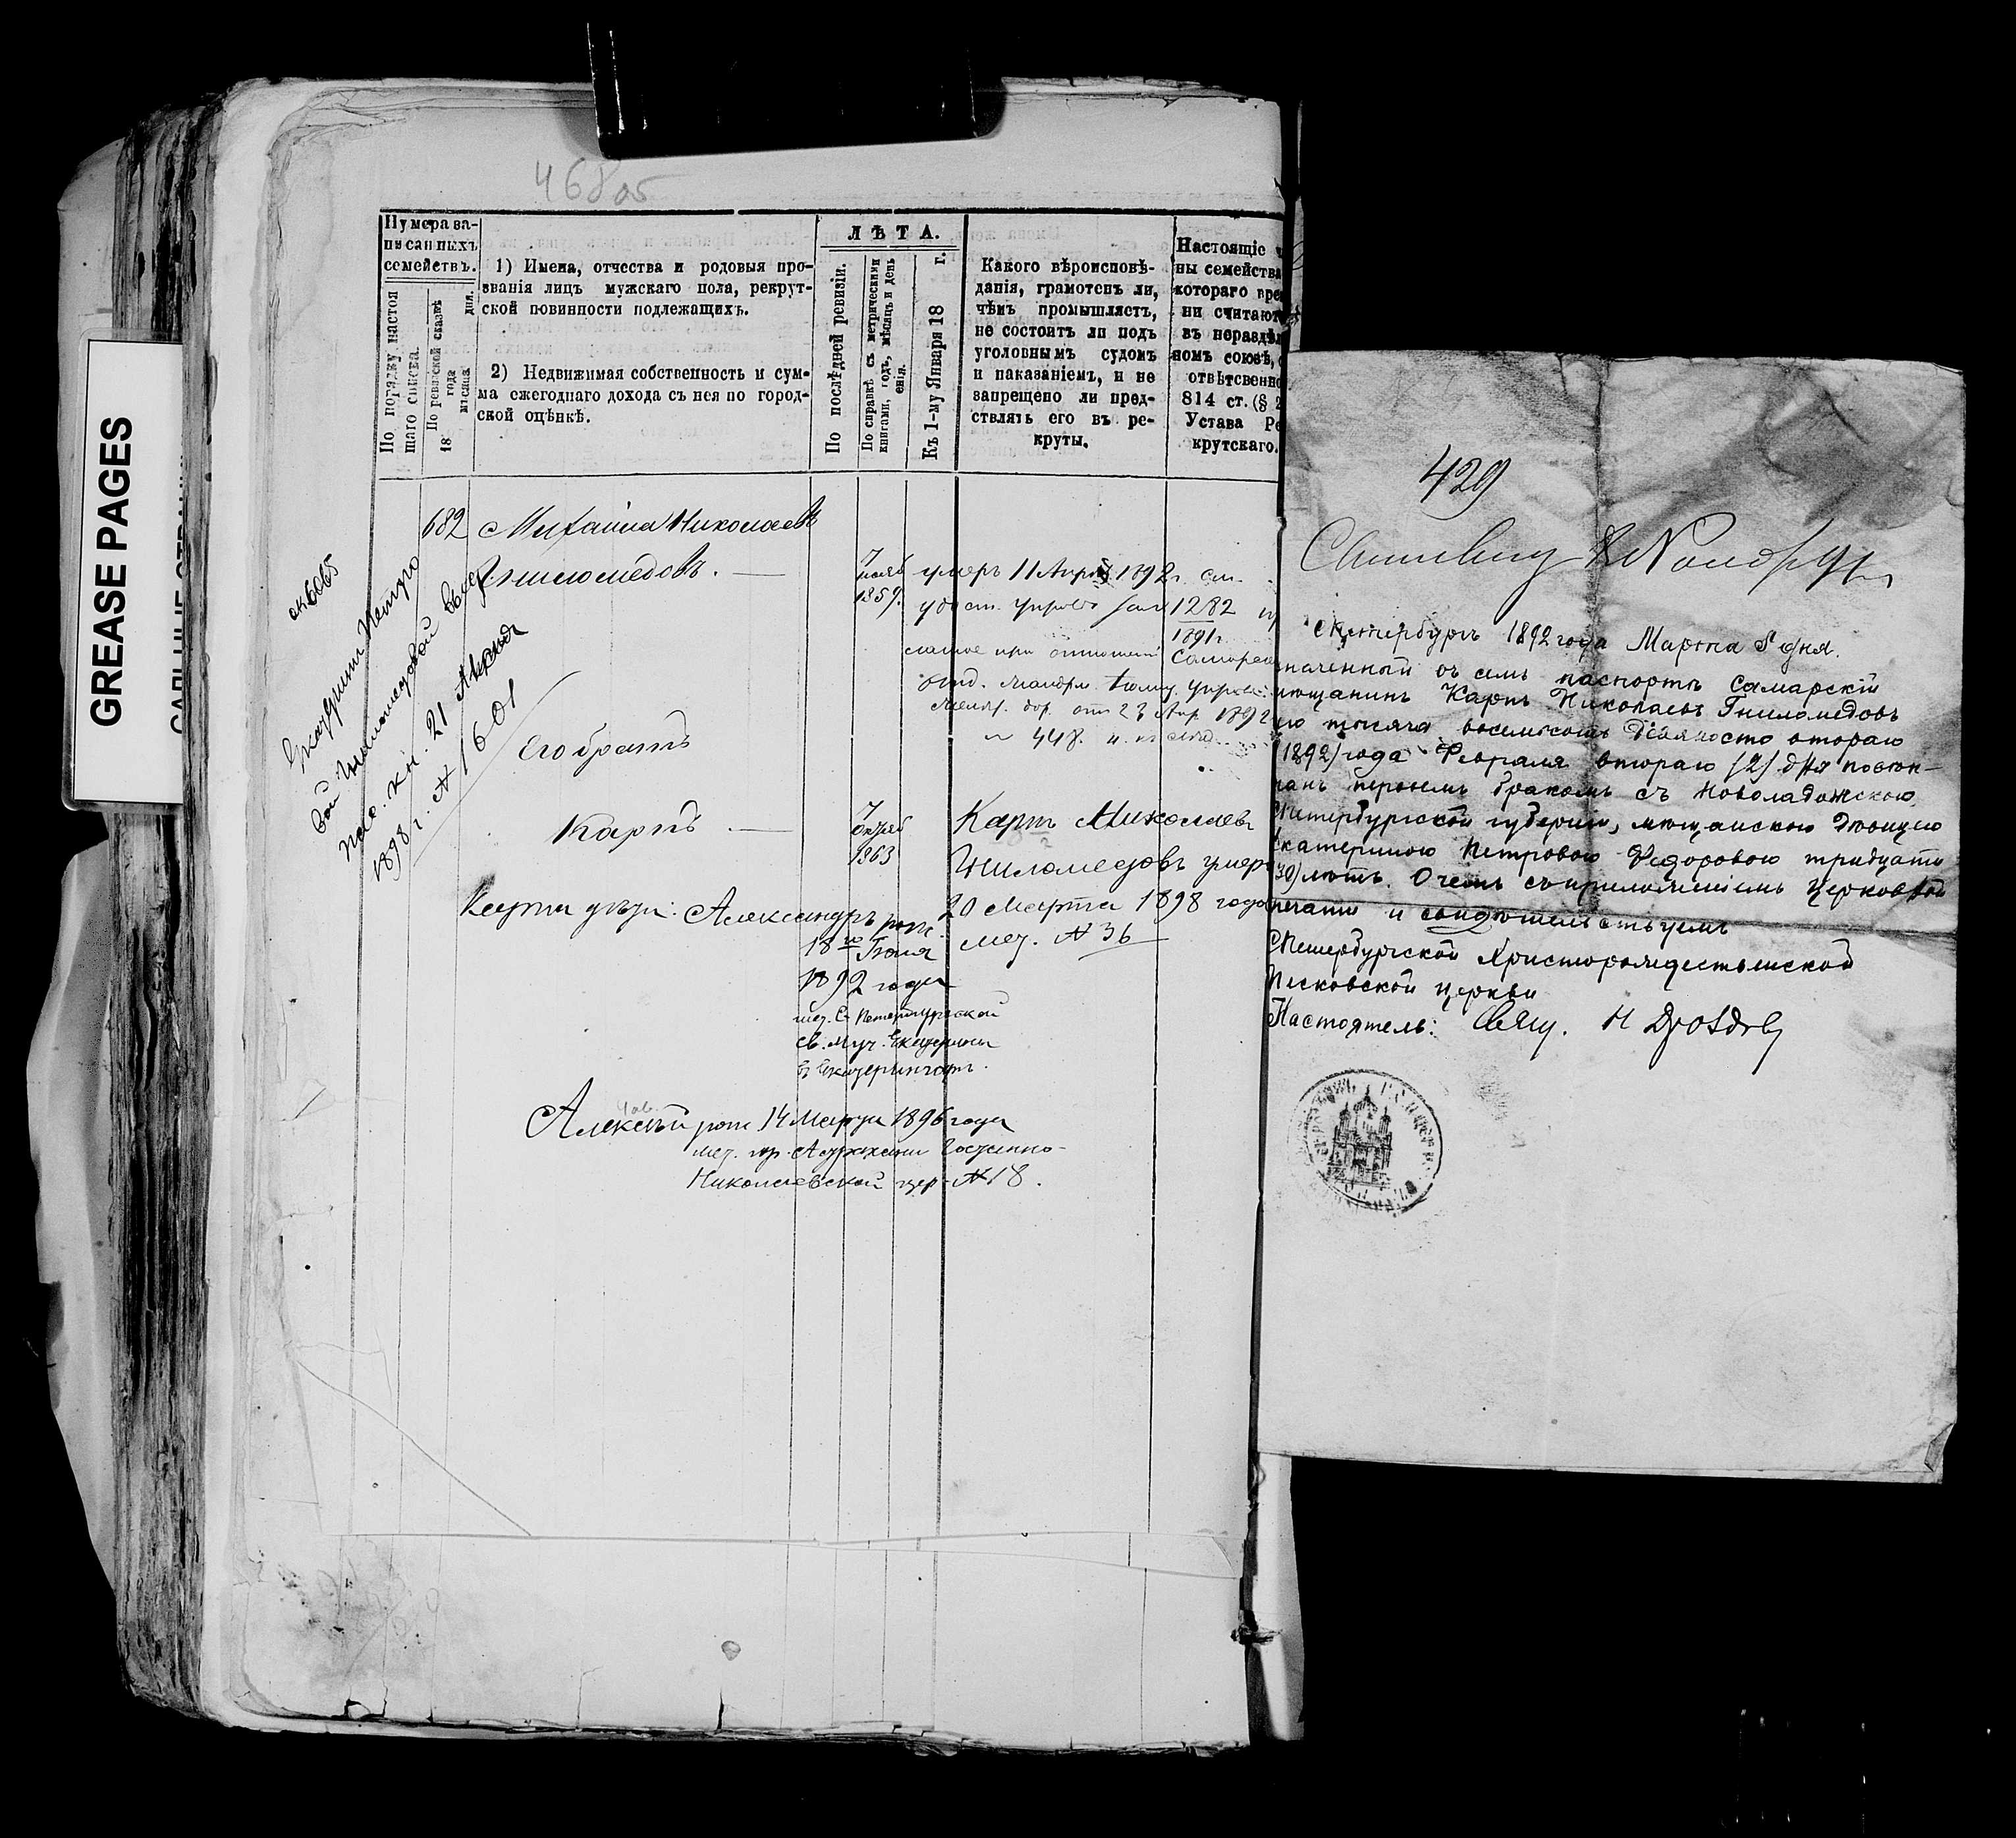 468 об
GREASE PAGES
Нумера за-
писанныхъ
семействъ.
По порядку настоя
щаго списка.
По ревизской сказкѣ
18 года
мѣсяца дня.
1) Имена, отчества и родовыя про-
званія лицъ мужскаго пола, рекрут-
ской повинности подлежащихъ.
2) Недвижимая собственность и сум-
ма ежегоднаго дохода съ нея по город-
ской оцѣнкѣ.
ЛѢТА.
По послѣдней ревизіи.
По справкѣ съ метрическими
книгами, годъ, мѣсяцъ и день
енія.
Къ 1-му Января 18 г.
Какого вѣроисповѣ-
данія, грамотенъ ли,
чѣмъ промышляетъ,
не состоитъ ли подъ
уголовнымъ судомъ
и наказаніемъ, и не
запрещено ли пред-
ствлять его въ ре-
круты.
Настоящіе ч
ны семейства
котораго
ни считают
въ нераздѣл
номъ союзѣ,
отвѣтсвенно
814 ст. (§ 2
Устава Ре
крутскаго.
682 Михаила Николаевъ
Гниломедовъ.
7
1859.
умеръ 11 Апрѣ 1892 г. см.
1282
1891 г.
отъ 23 Апр. 1892
Екатерин Петро
вой Гниломедовой
кн. 21
1898 г. № 1601
Его братъ
Карпъ
7
октяб
1863
Карпъ Николаевъ
Гниломедовъ умеръ
20 Марта 1898 года
мет. № 36
Карпа дѣти: Александръ рож.
18го Іюня
1892 года
мет. С Петербургской
св. муч. Екатерины
въ Екатерингофѣ.
Алексѣй рож 14 Марта 1896 года
мет. гр. Астрахани Гостинно-
Николаевской цер. № 18.
429
СПетербургъ 1892 года Марта 8 дня.
наченный въ семъ паспортѣ Самарскій
мѣщанинъ Карпъ Николаевъ Гниломедовъ
тысяча восемьсотъ девяносто втораго
(1892) года Февраля втораго (2) дня повѣн-
чанъ первымъ бракомъ съ Новоладожскою,
СПетербургской губерніи, мѣщанскою дѣвицею
Екатериною Петровою Ѳедоровою тридцати
(30) лѣтъ. О чемъ съ приложеніемъ церковной
печати и свидѣтельствуемъ
СПетербургской Христорождественской
Песковской церкви
Настоятель: Свящ. Н Дроздовъ